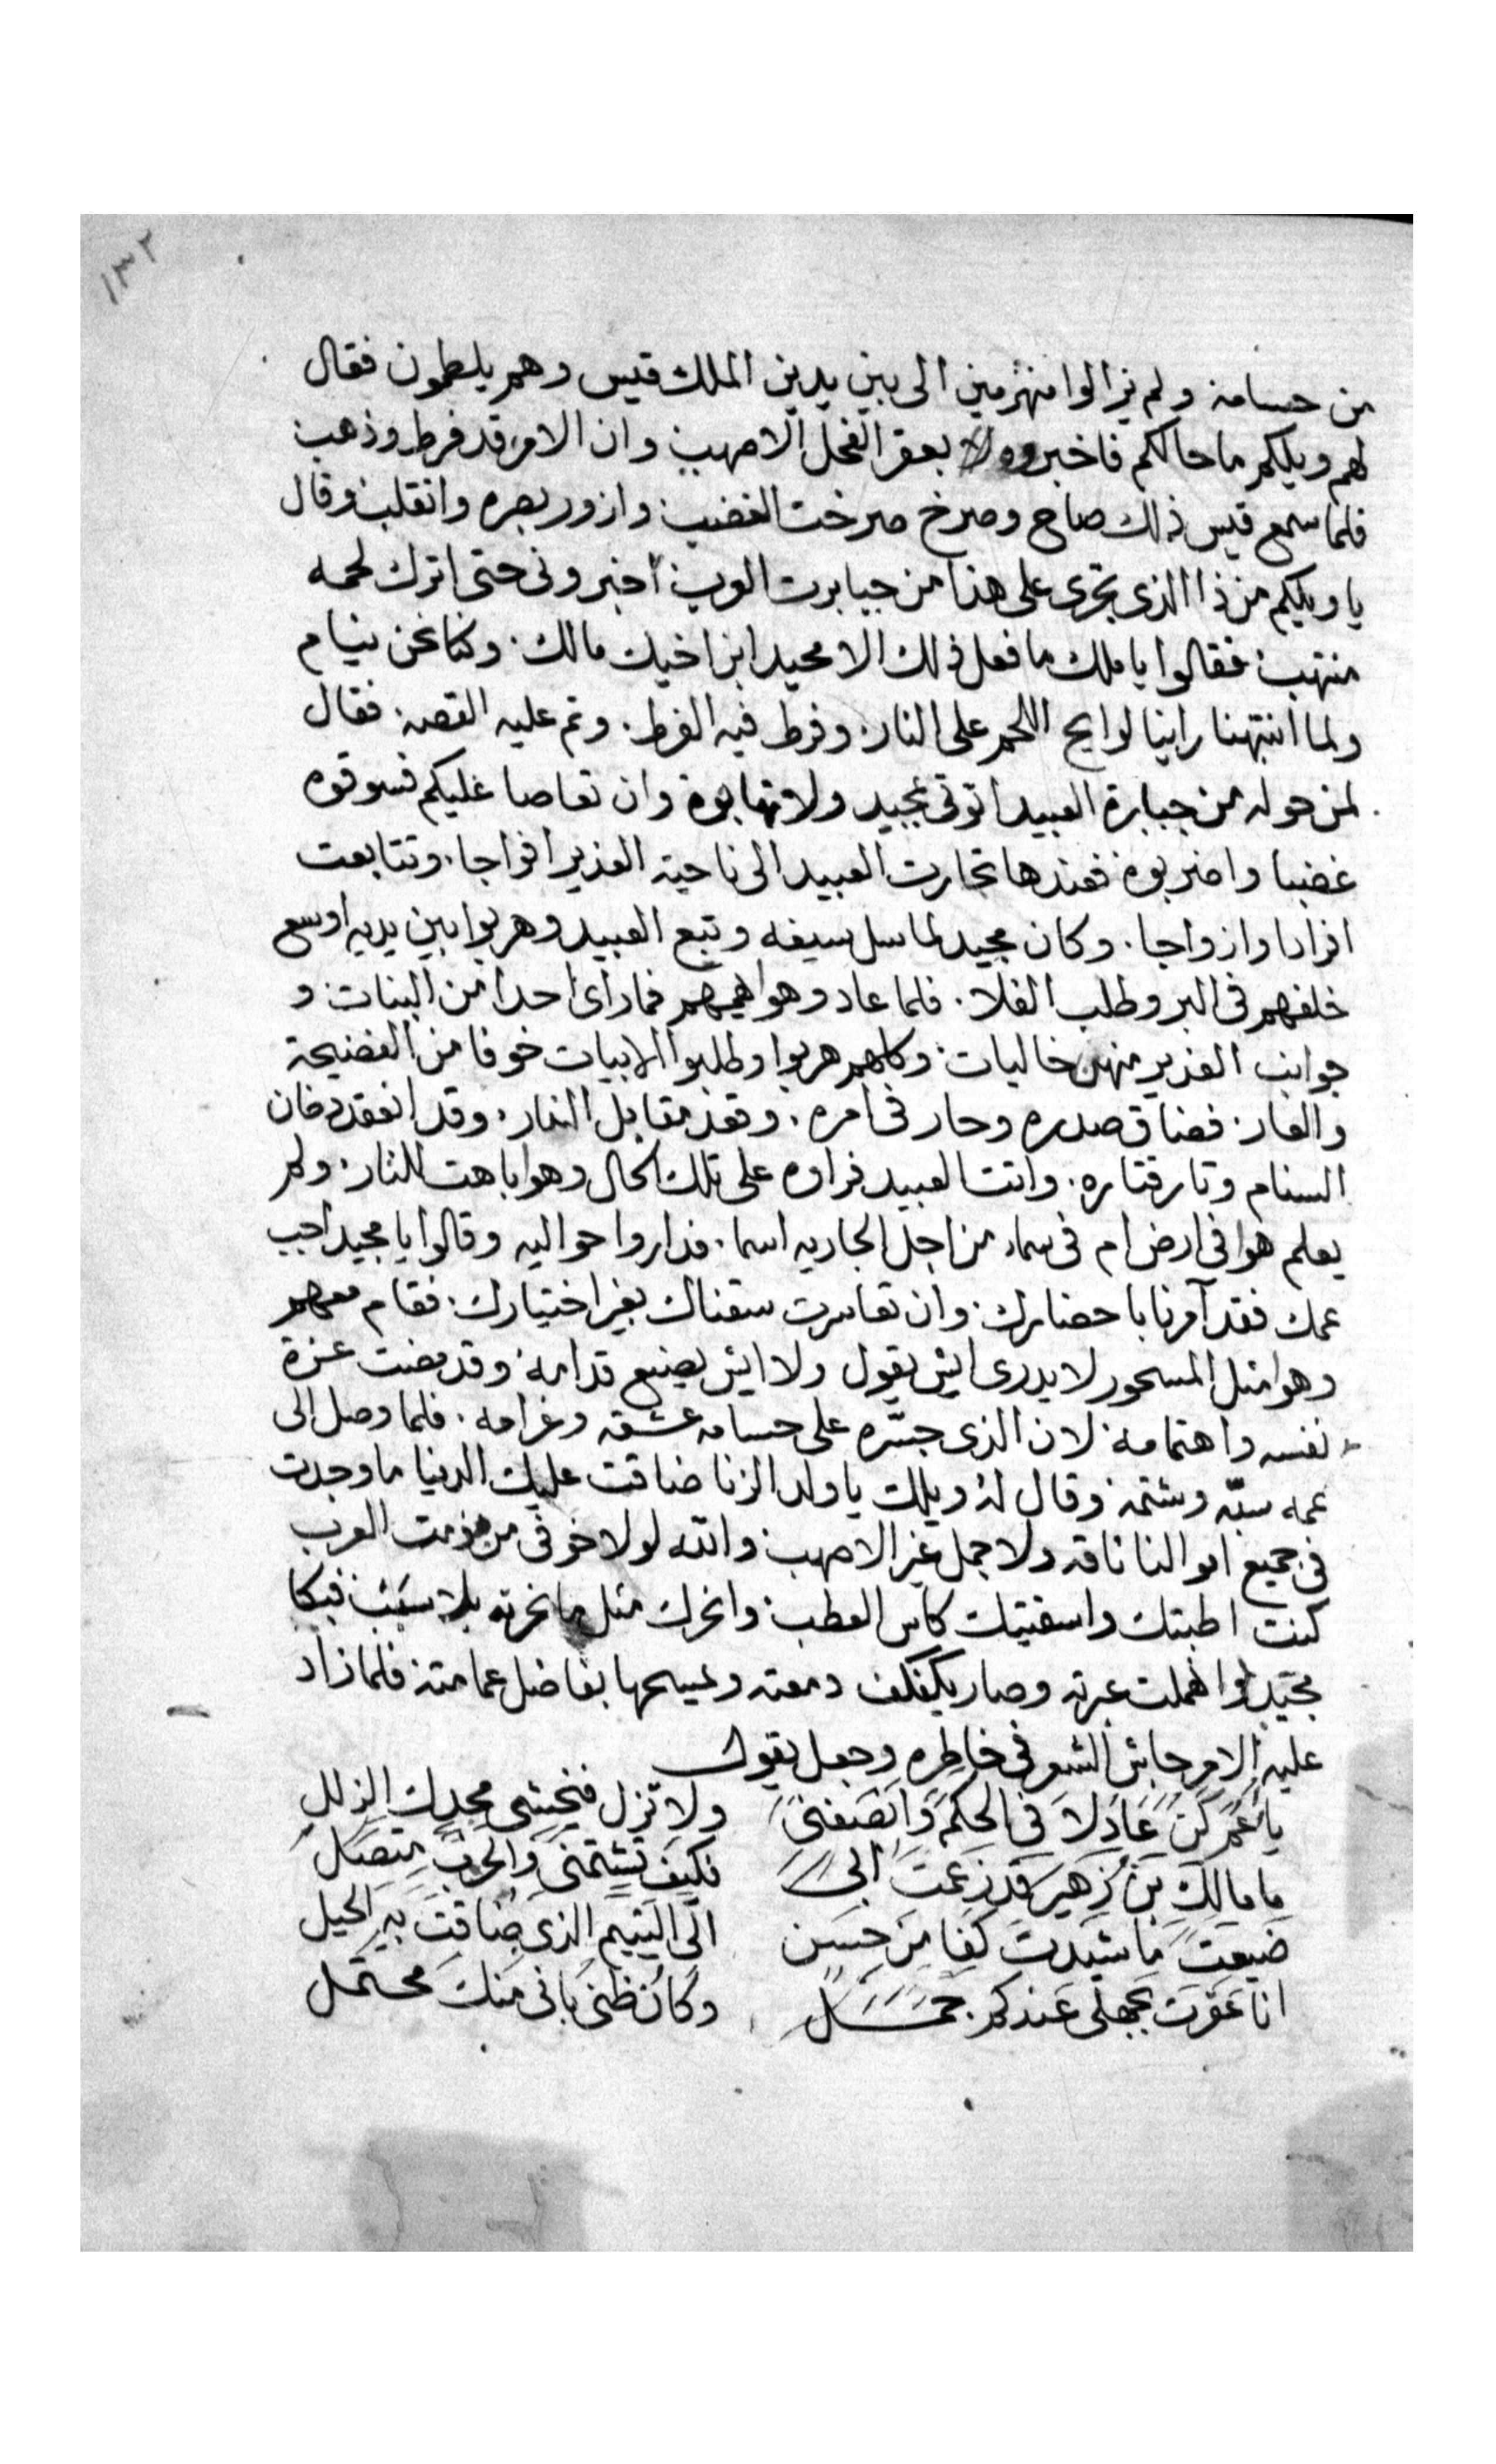 ١٣٢
من حسامه ولم يزالوا منهزمين الى بين يدين الملك قيس وهم يلطمون فقال
لهم ويلكم ما حالكم فاخبروه بعقر الفحل الاصهب وان الامر قد فرط وذهب
فلما سمع قيس ذلك صاح وصرخ صرخت الغضب وازور بصره وانقلب وقال
يا ويلكم من ذا الذى تجرى على هذا من جبابرت العرب اخبرونى حتى اترك لحمه
منتهب فقالوا يا ملك ما فعل ذلك الا مجيد ابن اخيك مالك. وكنا نحن نيام
ولما انتبهنا راينا لوايح اللحم على النار. وفرط فيه الفرط. وتم عليه القصه. فقال
لمن حوله من جبابرة العبيد اتوتى بمجيد ولا تهابوه وان تعاصا عليكم فسوقوه
غضبا واضربوه فعندها تجارت العبيد الى ناحية الغدير افواجا. وتتابعت
افرادا وازواجا. وكان مجيد لما سل سيفه وتبع العبيد وهربوا بين يديه اوسع
خلفهم فى البر وطلب الفلا. فلما عاد وهوا فما راى احدا من البنات و
جوانب الغدير منهن خاليات وكلهم هربوا وطلبوا الابيات خوفا من الفضيحة
والعار. فضاق صدره وحار فى امره. وقعد مقابل النار. وقد انعقد دخان
السنام وتار قتاره. واتت العبيد فراوه على تلك الحال وهوا باهت للنار. ولم
يعلم هوا فى ارض ام فى سماء من اجل الجاريه اسما. فداروا حواليه وقالوا يا مجيد اجب
عمك فقد آمرنا باحضارك. وان تعاسرت سقناك بغير اختيارك. فقام معهم
وهوا مثل المسحور لا يدرى ايش يقول ولا ايش يصنع قدامه وقد مضت عزة
نفسه واهتمامه لان الذى جسّره على حسامه عشقه وغرامه. فلما وصل الى
عمه سبّه وشتمه وقال له ويلك يا ولد الزنا ضاقت عليك الدنيا ما وجدت
فى جميع اموالنا ناقه ولا جمل غير الاصهب والله لولا خوفى من مذمت العرب
كنت اطبتك واسقيتك كاس العطب وانحرك مثل ما نحرته بلا سبب فبكا
مجيد وانهملت عبرته وصار يكفكف دمعته ويمسحها بفاضل عمامته فلما زاد
عليه الامر جاش الشعر فى خاطره وجعل يقول
يَا عَمِّ كُن عَادِلاَ فى الحكم وَانصفنى ولا تزل فيخشى مجدك الزلل
ما مالك بن زهير قد زعمت ابى فكيف تشتمنى والحرب متصل
ضيعت ما شيدت كفا من حسن الى اليتيم الذى ضاقت به الحيل
انا عقرت بجهلى عندكم. جمل وكان ظنى بانى منك محتمل